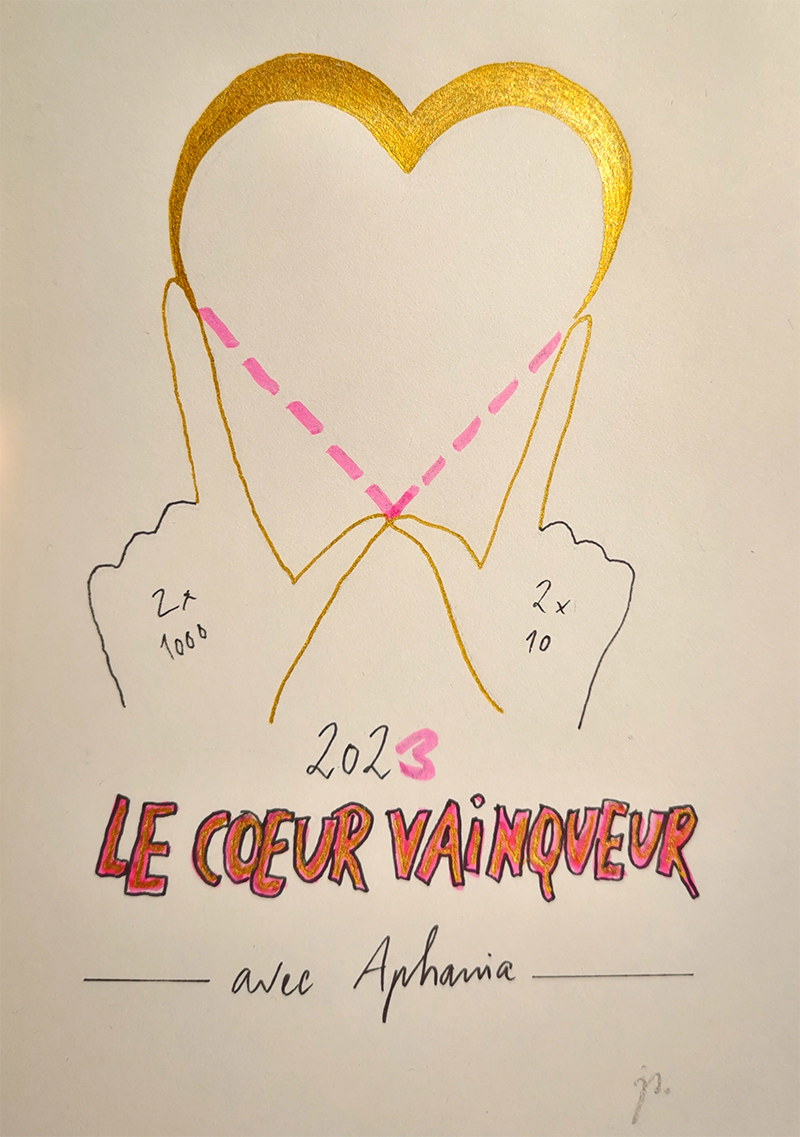 2x
1000
2x
10
2023
LE COEUR VAiNQUEUR
avec Aphania